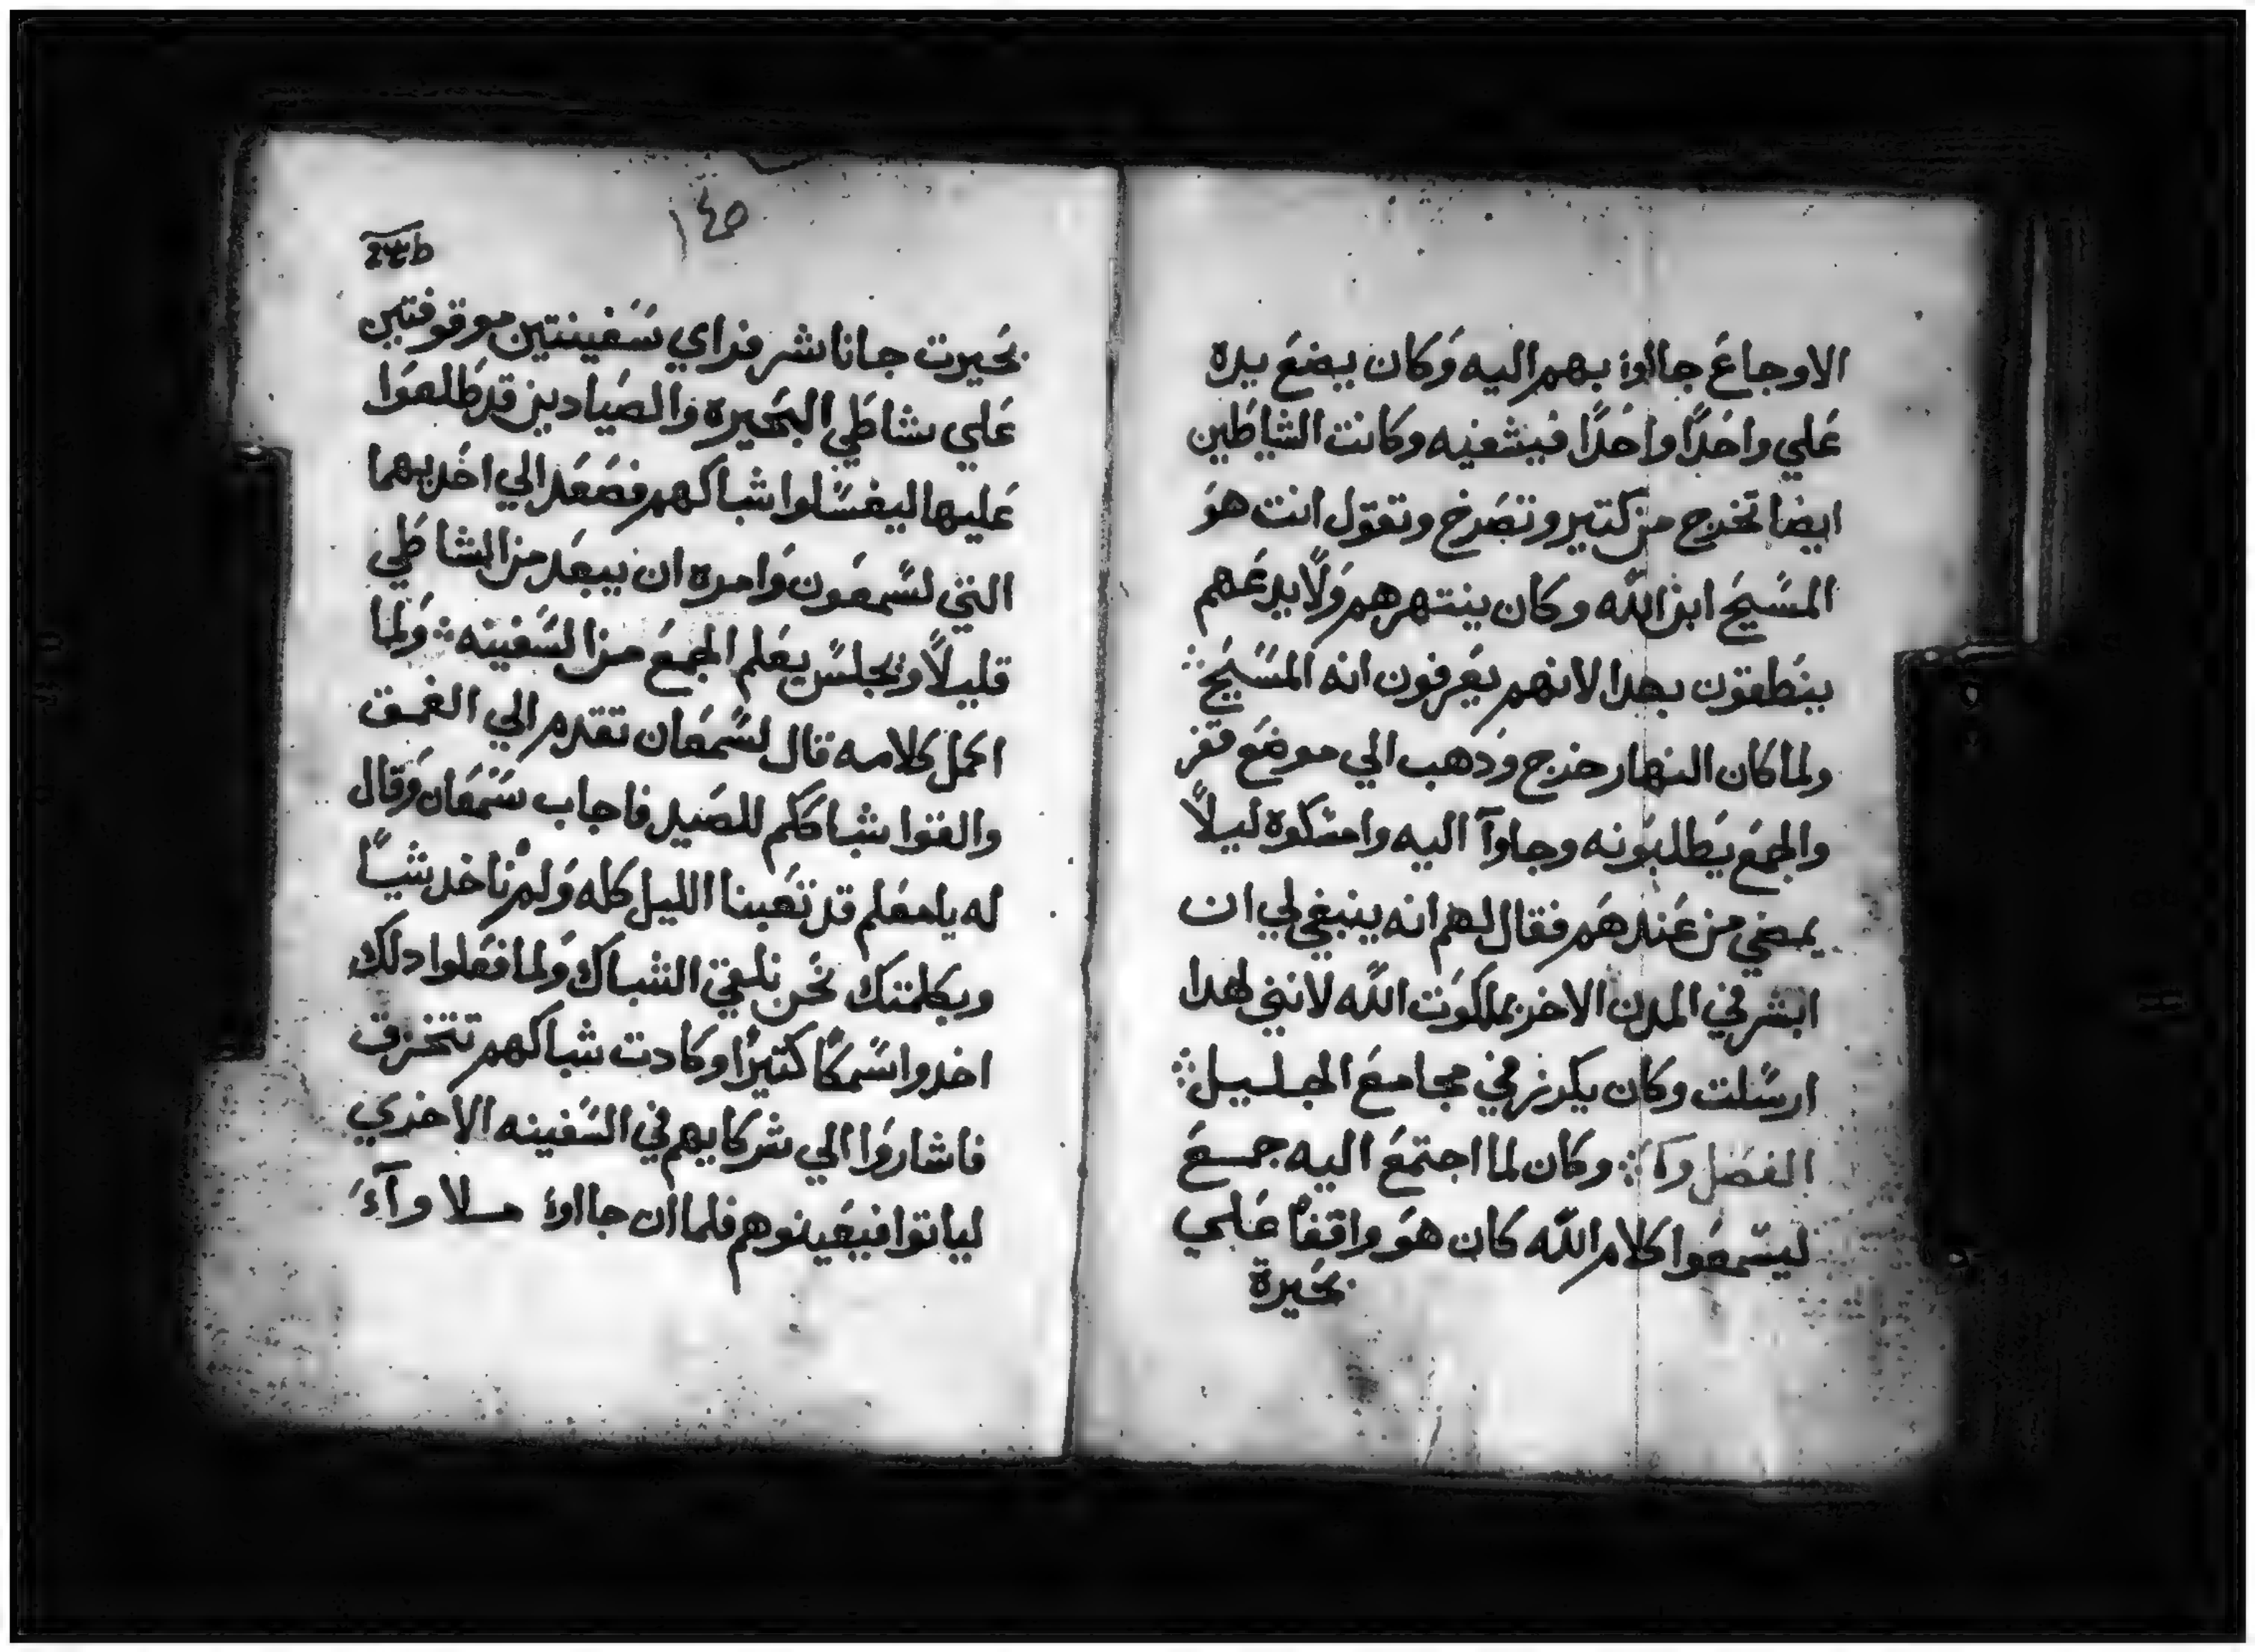 الاوجاع جااوا بهم اليه وكان يضع يده
علي واحدًا واحدًا فيشفيه وكانت الشياطين
ايضا تخرج من كتير وتصرخ وتقول انت هو
المسيح ابن الله وكان ينتهرهم ولا يدعهم
ينطقون بهدا لانهم يعرفون انه المسيح
ولما كان النهار خرج ودهب الي موضع قفر
والجمع يطلبونه وجاوآ اليه وامسكوه ليلًا
يمضي من عندهم فقال لهم انه ينبغي لي ان
ابشر في المدن الاخر بملكوت الله لانني لهدا
ارسلت وكان يكرز في مجامع الجليل
الفصل وكان لما اجتمع اليه جمع
ليسمعوا كلام الله كان هو واقفًا علي
بحيرة
١٤٥
بحيرت جاناشر فراي سفينتين موقوفتين
علي شاطي البحيره والصيادين قد طلعوا
عليها ليغسلوا شباكهم فصعد الي احديهما
التي لسمعون وامره ان يبعد من الشاطي
قليلًا وجلس يعلم الجمع من السفينه ولما
اكمل كلامه قال لسمعان تقدم الي الغمق
والقوا شباككم للصيد فاجاب سمعان وقال
له يامعلم قد تعبنا الليل كله ولم ناخد شيًا
وبكلمتك نحن نلقي الشباك ولما فعلوا دلك
اخدوا سمكًا كتيرًا وكادت شباكهم تتخرق
فاشاروا الي شركايهم في السفينه الاخري
لياتوا فيعينوهم فلما ان جااوا ملاوآ